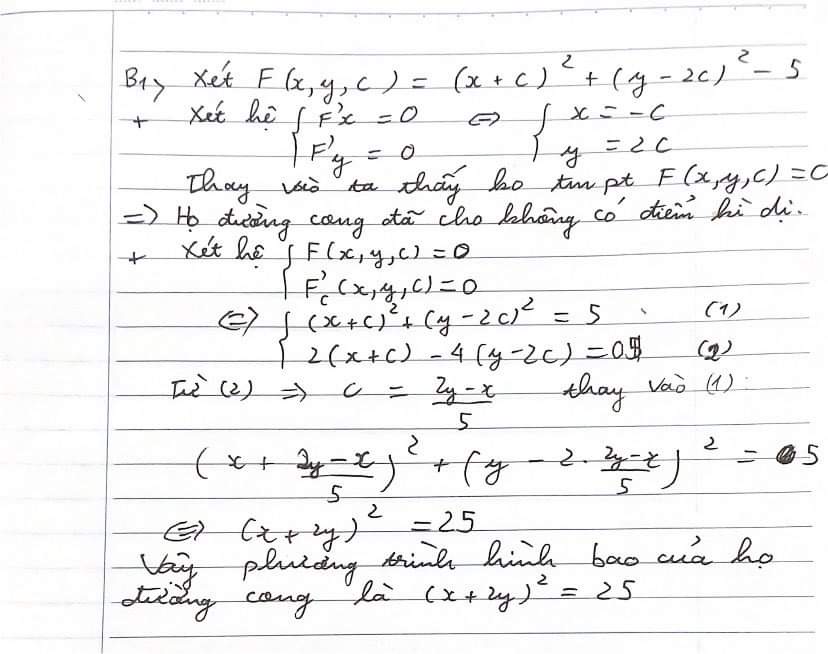 B1, Xét F(x,y,c) = (x+c)² + (y-2c)² - 5
+ Xét hệ { F'x = 0 ⇔ { x = -c
F'y = 0 y = 2c
Thay vào ta thấy ko tm pt F(x,y,c) = 0
=> Họ đường cong đã cho không có điểm kì dị.
+ Xét hệ { F(x,y,c) = 0
F'c (x,y,c) = 0
⇔ { (x+c)² + (y-2c)² = 5 (1)
2(x+c) - 4(y-2c) = 0 (2)
Từ (2) => c = (2y-x)/5 thay vào (1):
(x + (2y-x)/5)² + (y - 2. (2y-x)/5)² = 5
⇔ (x+2y)² = 25
Vậy phương trình hình bao của họ
đường cong là (x+2y)² = 25